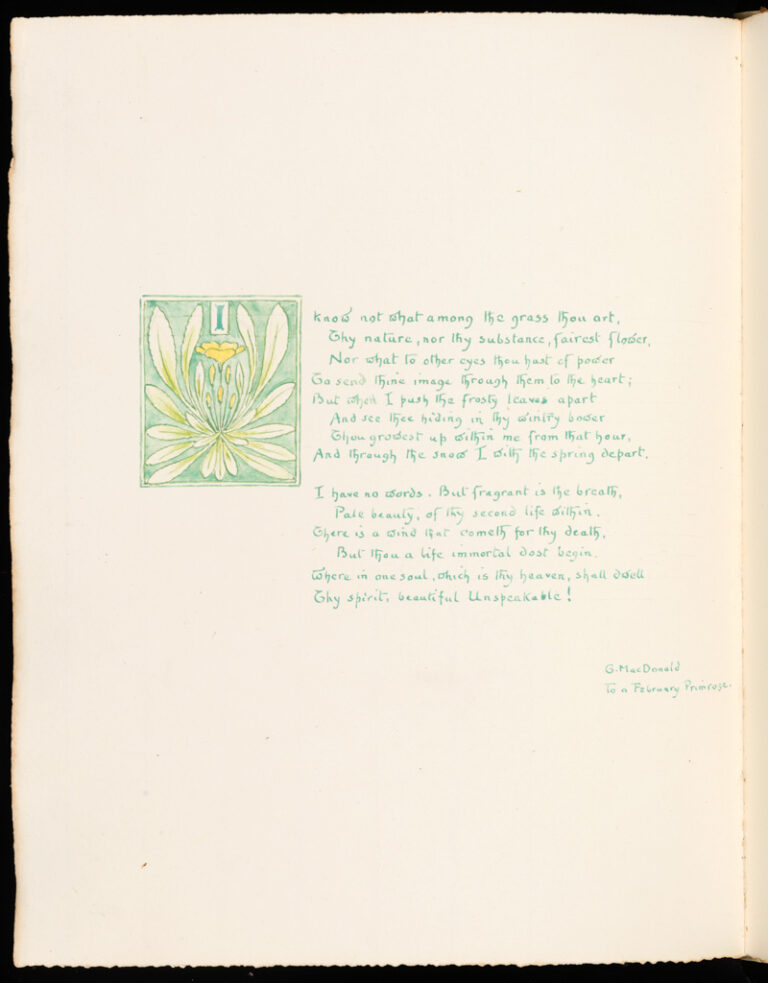 I
know not what among the grass thou art,
Thy nature, nor thy substance, fairest flower,
Nor what to other eyes thou hast of power
To send thine image through them to the heart;
But when I push the frosty leaves apart
And see thee hiding in thy wintry bower
Thou growest up within me from that hour,
And through the snow I with the spring depart.
I have no words. But fragrant is the breath,
Pale beauty, of thy second life within.
There is a wind that cometh for thy death,
But thou a life immortal dost begin.
Where in one soul, which is thy heaven, shall dwell
Thy spirit, beautiful Unspeakable!
G. MacDonald
To a February Primrose.